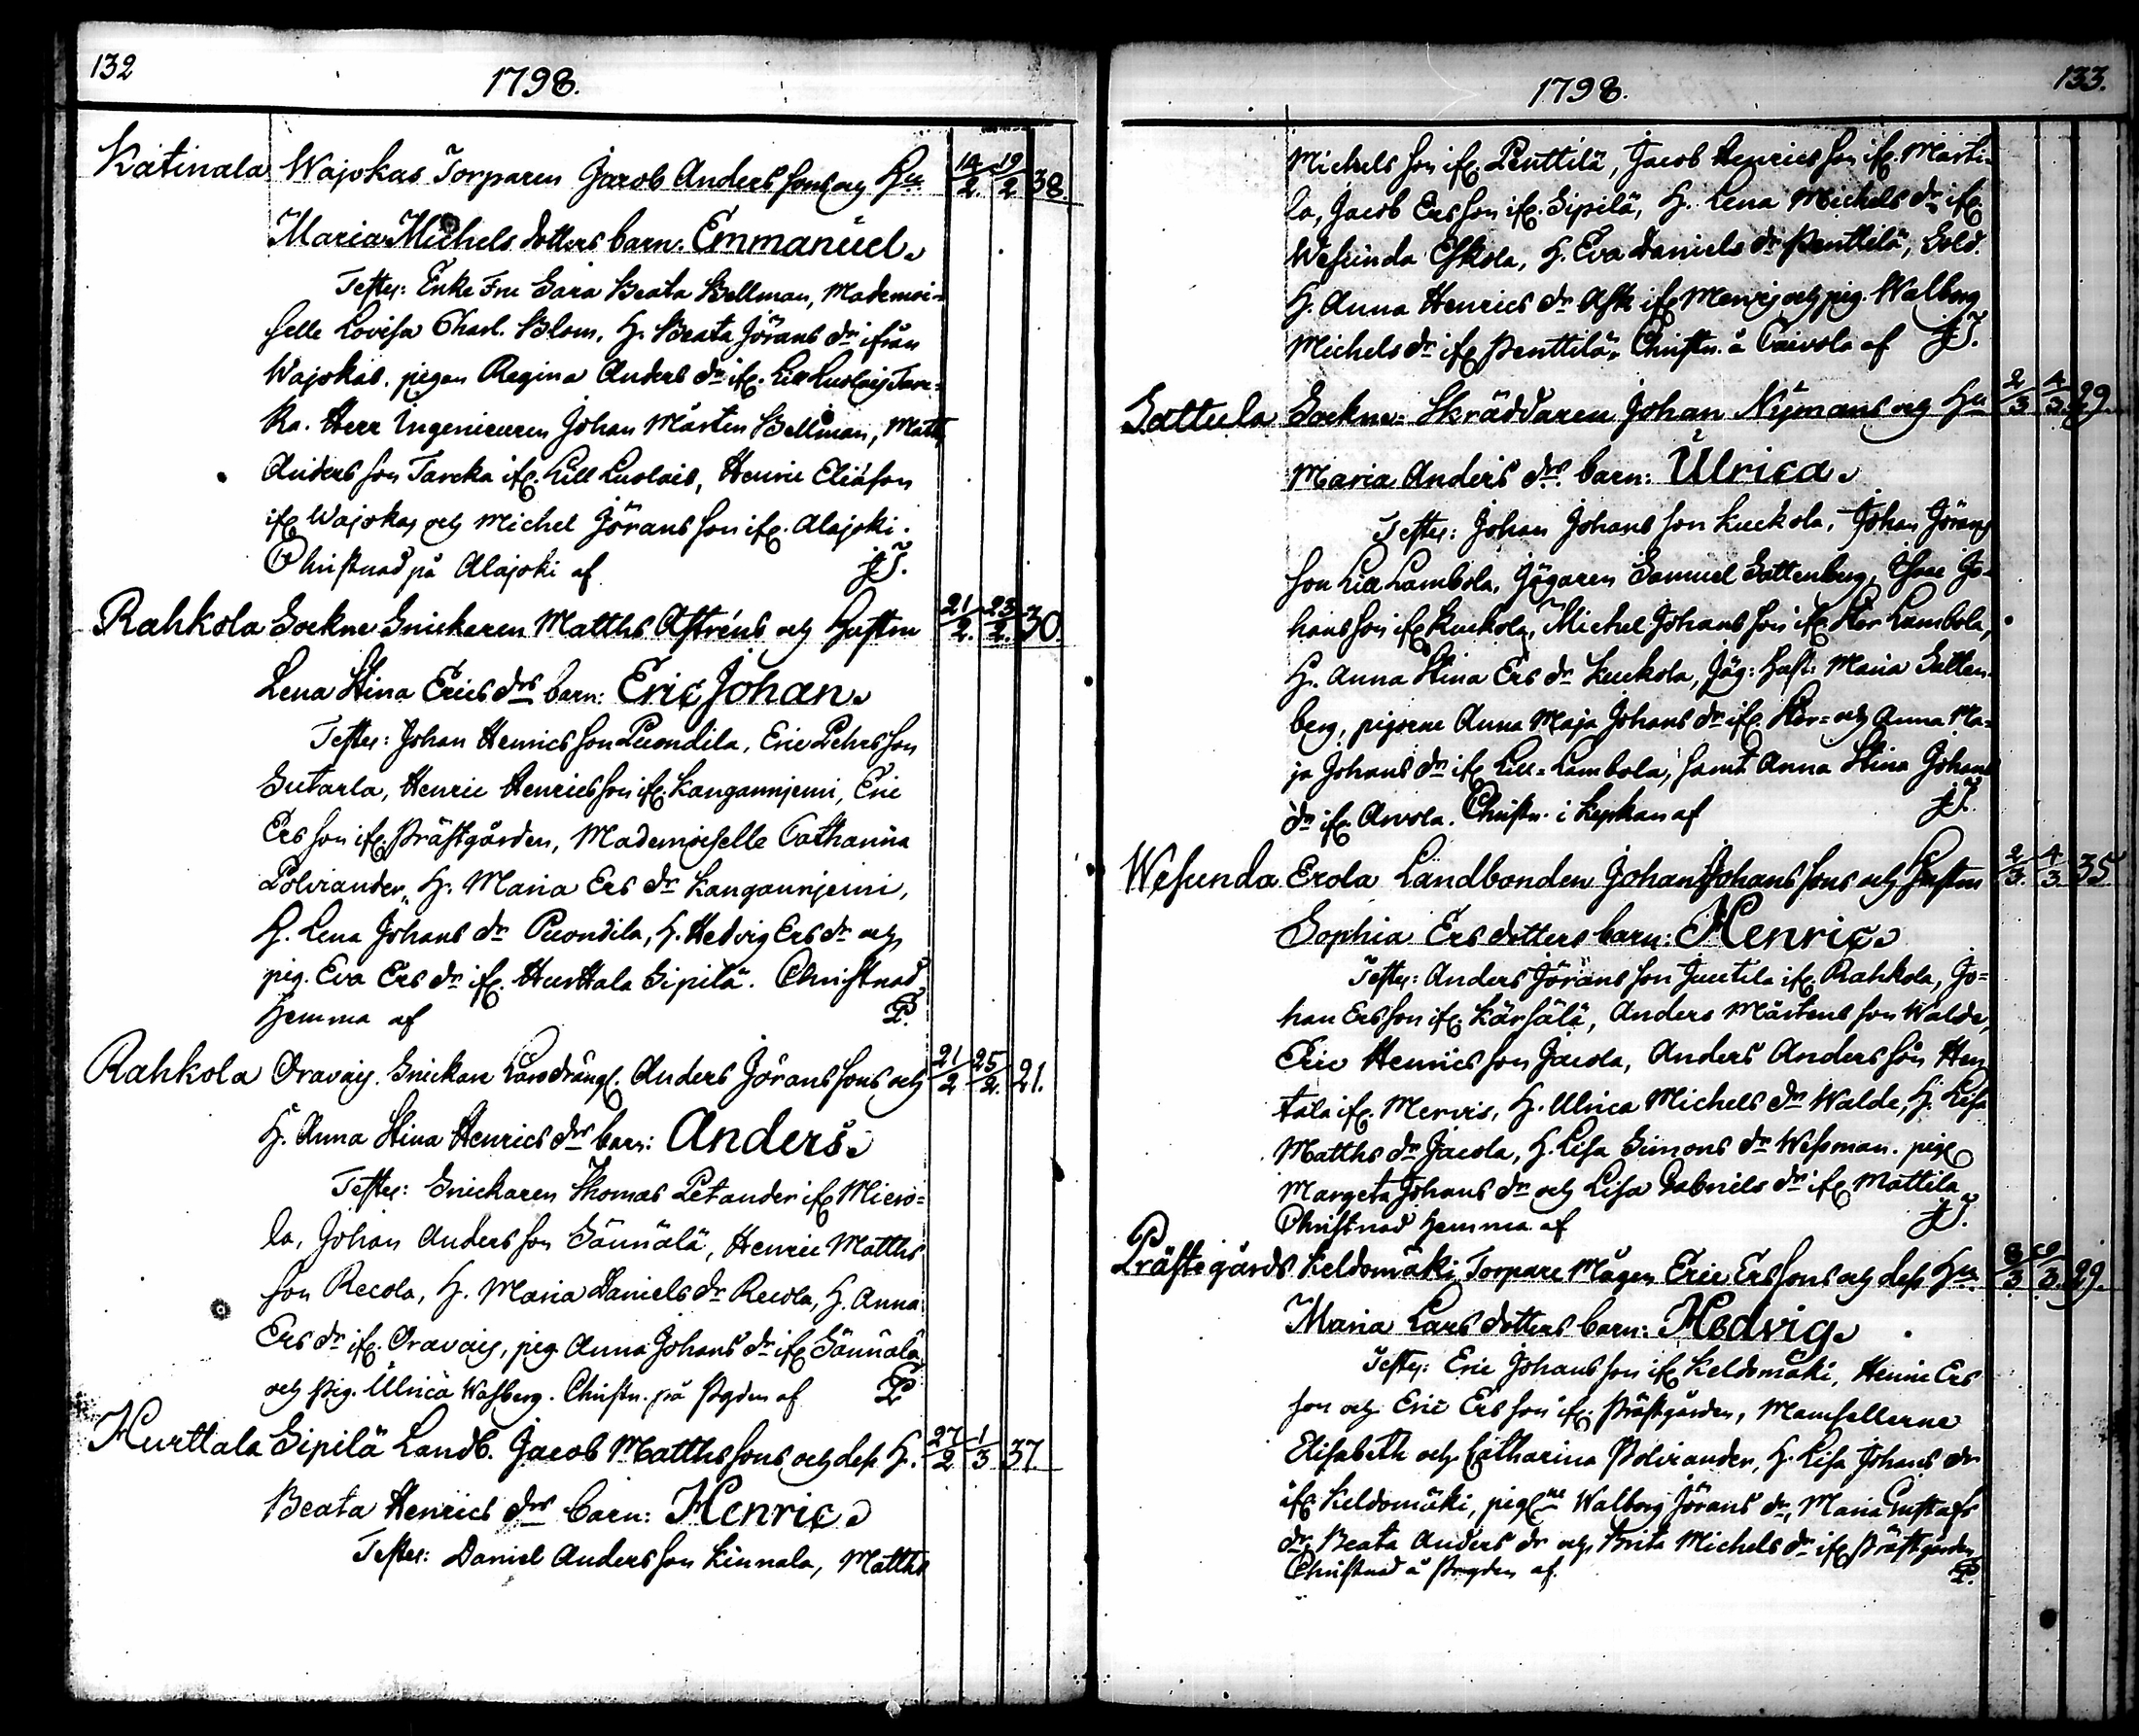 132
1798.
Katinala Wajokas Torparen Jacob Anders sons och Hu 14/2. 19/2 38.
Maria Michels dotters barn: Emmanuel.
Testes: Enke Fru Sara Beata Bellman, Mademoi-
selle Lovisa Charl. Blom, H. Beata Jörans dr ifrån
Wajokas. pigan Regina Anders dr if. Lill Luolais Tare-
ka. Herr Ingenieuren Johan Mårten Bellman, Matts
Anders son Tareka if. Lill Luolais, Henric Eliæ son
if. Wajokas och Michel Jörans son if. Alajoki.
Christnad på Alajoki af JJ.
Rahkola Sockne Snickaren Matths Astréns och Hustru 21/2. 23/2. 30.
Lena Stina Erics drs barn: Eric Johan.
Testes: Johan Henrics son Puondila, Eric Pehrs son
Sutarla, Henric Henrics son if. Kangannjemi, Eric
Ers son if. Prästgården, Mademoiselle Catharina
Polviander, H. Maria Ers dr Kangannjemi,
H. Lena Johans dr Puondila, H. Hedvig Ers dr och
pig. Eva Ers dr if. Hurttala Sipilä. Christnad
hemma af P.
Rahkola Oravais. Snickare Lärodräng. Anders Jörans sons och 21/2 25/2. 21.
H. Anna Stina Henrics drs barn: Anders.
Testes: Snickaren Thomas Petander if. Miero-
la, Johan Anders son Sännälä, Henric Matths
son Recola, H. Maria Daniels dr Recola, H. Anna
Ers dr if. Oravais, pig. Anna Johans dr if. Sännälä
och pig. Ulrica Wahberg. Christn. på Pgden af P
Hurttala Sipilä Landb. Jacob Matths sons och dess H. 27/2 1/3 37.
Beata Henrics drs barn: Henric.
Testes: Daniel Anders son Kinnala, Matths
1798.
133.
Michels son if. Penttilä, Jacob Henrics son if. Marti-
la, Jacob Ers son if. Sipilä, H. Lena Michels dr if.
Wesunda Eskola, H. Eva Daniels dr Penttilä, Sold.
H. Anna Henrics dr Ask if. Mervis och pig. Walborg
Michels dr if. Penttilä. Christn. å Toivola af JJ.
Sattula Sockne-Skräddaren Johan Nymans och Hu 2/3 4/3. 29.
Maria Anders drs barn: Ulrica.
Testes: Johan Johans son Kuckola, Johan Jörans
son Lill Lambola, Jägaren Samuel Sattenberg, Isaac Jo-
hans son if. Kuckola, Michel Johans son if. Stor Lambola,
H. Anna Stina Ers dr Kuckola, Jäg: Hust: Maria Satten-
berg, pigorne Anna Maja Johans dr if. Stor- och Anna Ma-
ja Johans dr if. Lill-Lambola, samt Anna Stina Johans
dr if. Arvola. Christn. i kyrkan af JJ.
Wesunda Erola Landbonden Johan Johans sons och Hustru 2/3. 4/3. 35
Sophia Ers dotters barn: Henric.
Testes: Anders Jörans son Juutila if. Rahkola, Jo-
han Ers son if. Kärsälä, Anders Mårtens son Walde,
Eric Henrics son Jacola, Anders Anders son Hen
tala if. Mervis, H. Ulrica Michels dr Walde, H. Lisa
Matths dr Jacola, H. Lisa Simons dr Wesman. pig.
Margeta Johans dr och Lisa Gabriels dr if. Mattila
Christnad hemma af JJ.
Prästegårds Keldomäki Torpare Mågen Eric Ers sons och dess Hu 8/3 9/3. 29.
Maria Lars dotters barn: Hedvig.
Testes: Eric Johans son if. Keldomäki, Henric Ers
son och Eric Ers son if. Prästgården, Mamsellerne
Elisabeth och Catharina Polviander, H. Lisa Johans dr
if. Keldomäki, pig.ne Walborg Jörans dr, Maria Gustafs
dr, Beata Anders dr och Brita Michels dr if. Prästgården
Christnad å Prgden af. P.